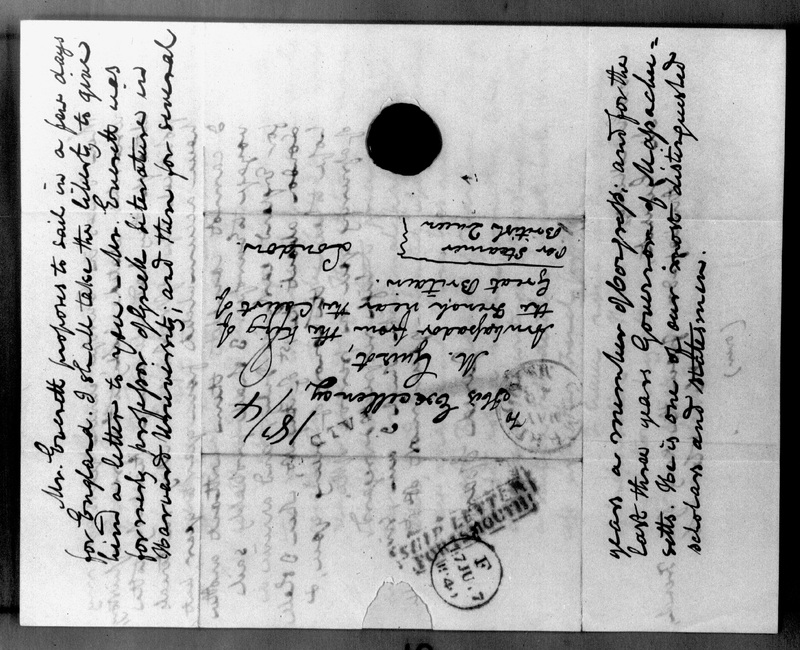 Mr. Everett proposes to sail in a few days
for England. I shall take the liberty to give
him a letter to you. Mr. Everett was
formerly professor of Greek literature in
Harvard University; and then for several
years a member of Congress; and for the
last three years Governor of Massachu=
setts. He is one of our most distinguished
scholars and statesmen.
To His Excellency,
M. Guizot,
Ambassador from the King of
the French near the Court of
Great Britain.
London.
Per Steamer
British Queen
PAID
SHIP LETTER
PORTSMOUTH
F
17 JU 17